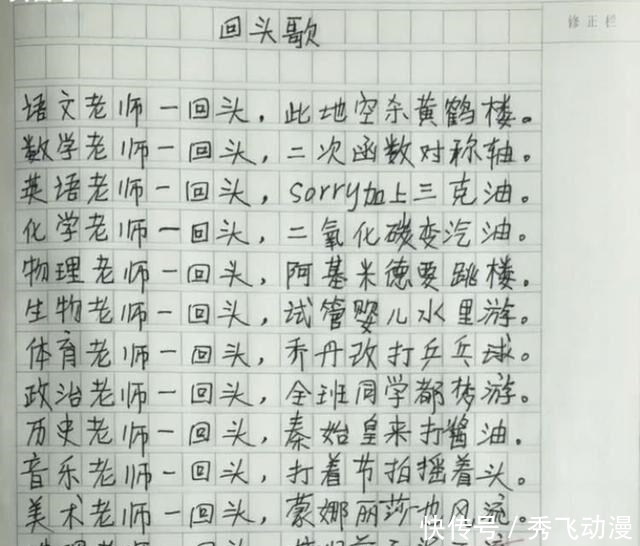 修正栏
回头歌
语文老师一回头，此地空杀黄鹤楼。
数学老师一回头，二次函数对称轴。
英语老师一回头，sorry加上三克油。
化学老师一回头，二氧化碳变汽油。
物理老师一回头，阿基米德要跳楼。
生物老师一回头，试管婴儿水里游。
体育老师一回头，乔丹改打乒乓球。
政治老师一回头，全班同学都梦游。
历史老师一回头，秦始皇来打酱油。
音乐老师一回头，打着节拍摇着头。
美术老师一回头，蒙娜丽莎也风流。
快传号/秀飞动漫
老师一回头，